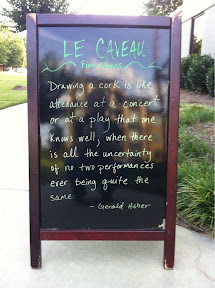 LE CAVEAU
Fine Wines
Drawing a cork is like
attedance at a concert
or at a play that one
knows well, when there
is all the uncertainty
of no two performances
ever being quite the
same.
- Gerald Asher